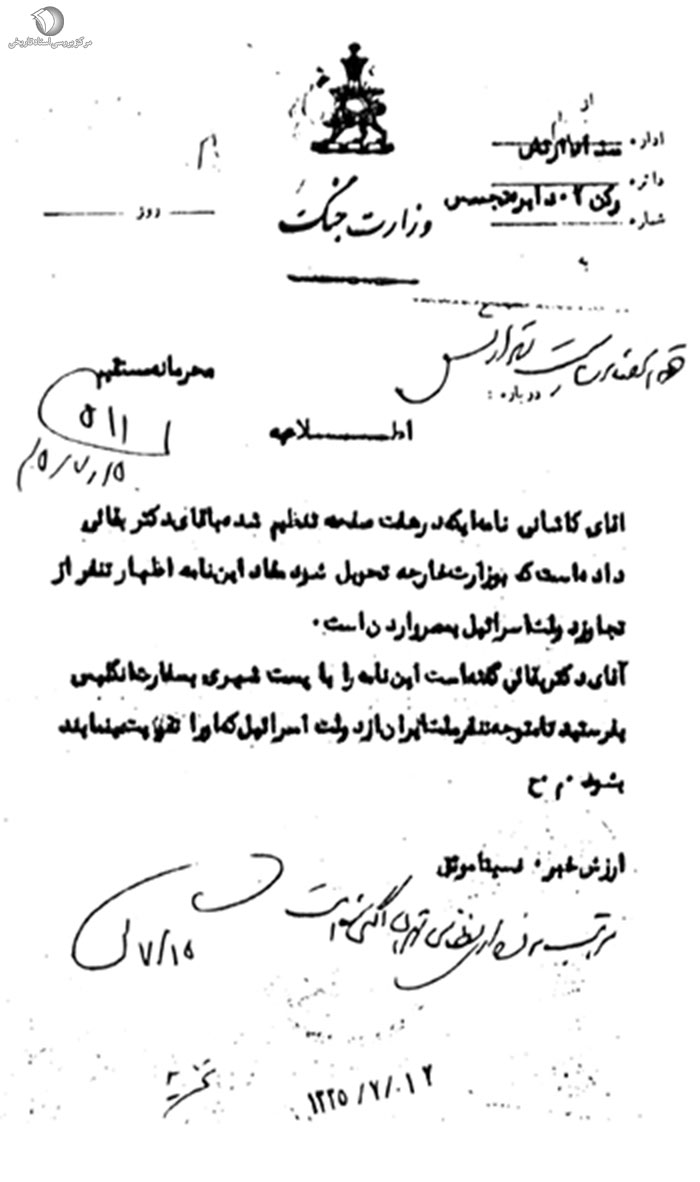 مرکز بررسی اسناد تاریخی
از
اداره ستاد ارتش
دائره رکن ۲ دایره تجسس
شماره
روز
وزارت جنگ
به
محرمانه مستقیم
درباره :
۵۱۱
اطلاعیه
اقای کاشانی نامه‌ایکه در هشت صفحه تنظیم شده باقای دکتر بقائی
داده است که بوزارت خارجه تحویل شود مفاد این نامه اظهار تنفر از
تجاوز دولت اسرائیل بمصر و اردن است.
آقای دکتر بقائی گفته است این نامه را با پست شهری بسفارت انگلیس
بفرستید تا متوجه تنفر ملت ایران از دولت اسرائیل که او را تقویت مینمایند
بشود. م.ح
ارزش خبر. نسبتا موثق
۷/۱۵
۱۳۳۵/۷/۰۱۲